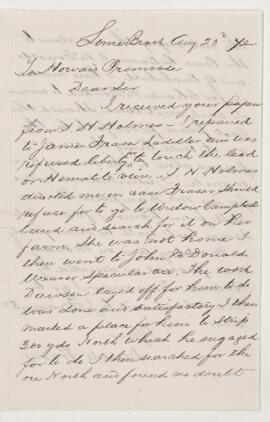 Lime Brook Aug 23d /72
To Howard Primrose
Dear Sir
I received your papers
from S. H Holmes - I repaired
to James Fraser Saddler and was
refused liberty to touch the lead
or Hematite vein. S H Holmes
directed me in case Fraser should
refuse for to go to Widow Campbells
land and search for it on her
farm. She was not home. I
then went to John McDonald
Weaver Specular ore. The work
Dawson layed off for him to do
was done and satisfactory I then
marked a place for him to strip
200 yds North which he engaged
for to do I then searched for the
ore North and found no doubt